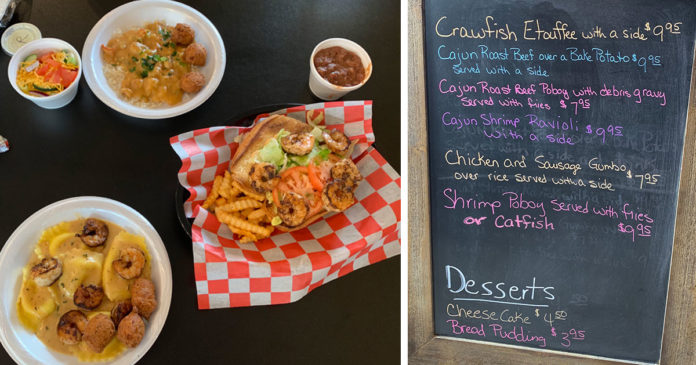 Crawfish Etouffee with a side $9.95
Cajun Roast Beef over a Bake Potato $9.95
served with a side
Cajun Roast Beef Poboy with debris gravy
served with fries $7.95
Cajun Shrimp Ravioli $9.95
with a side
Chicken and Sausage Gumbo $7.95
over rice served with a side
Shrimp Poboy served with fries
or Catfish $9.95
Desserts
Cheese Cake $4.50
Bread Pudding $3.95